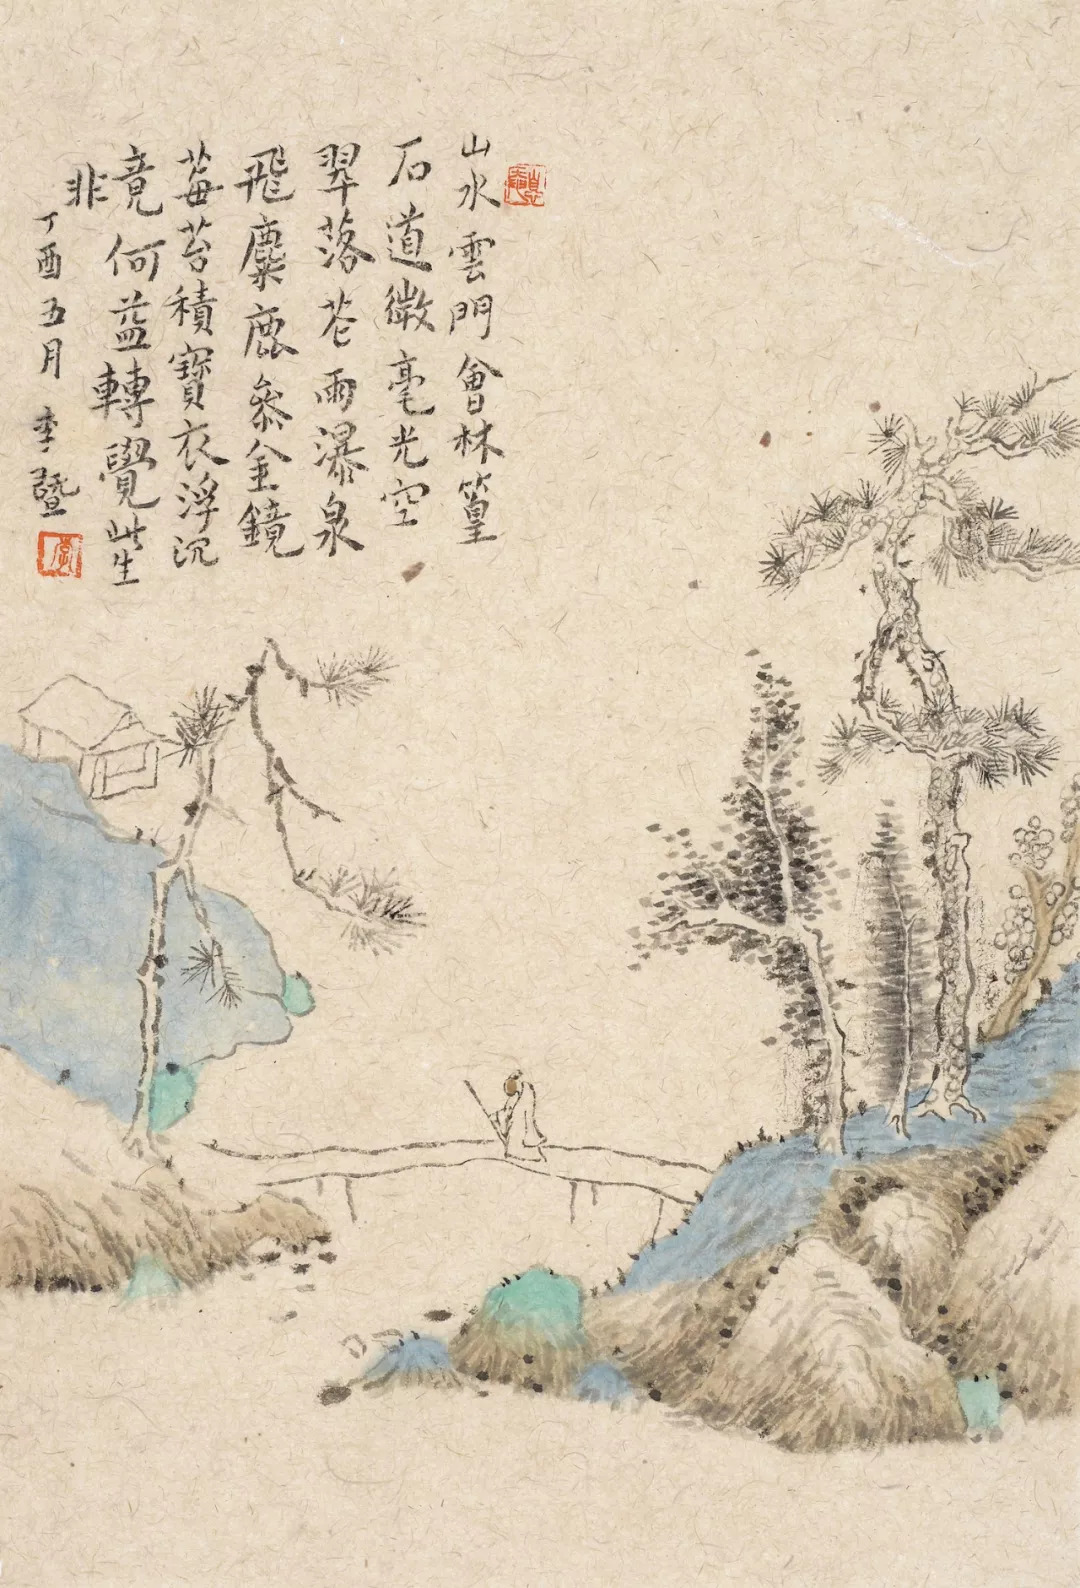 山水雲門會林篁
石道微毫光空
翠落花雨瀑泉
飛麋鹿叅金鏡
莓苔積寶衣浮沉
竟何益轉覺此生
非
丁酉五月 李暨